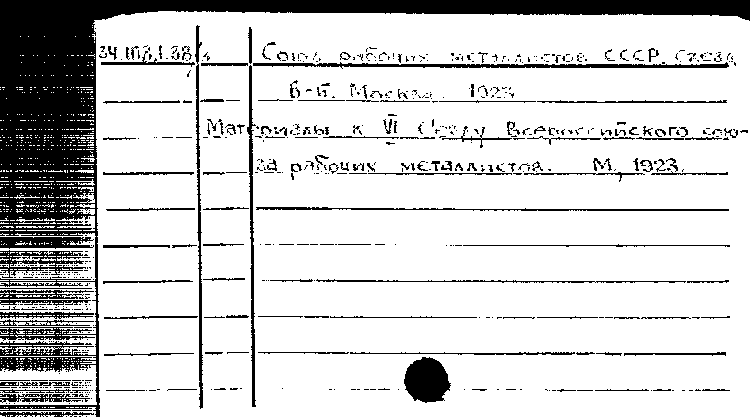 34.108.1.38/3 Союз рабочих металлистов СССР. Съезд
6-й. Москва. 1923
Материалы к VI Съезду Всероссийского сою-
за рабочих металлистов. М, 1923.